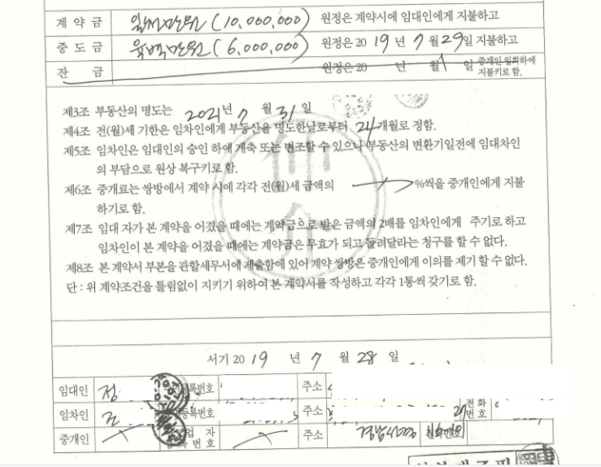 계약금 일천만원 (10,000,000) 원정은 계약시에 임대인에게 지불하고
중도금 육백만원 (6,000,000) 원정은 2019년 7월 29일 지불하고
잔금 원정은 20 년 월 일 중개인 입회하에 지불키로 함.
제3조 부동산의 명도는 2021년 7월 31일
제4조 전(월)세 기한은 임차인에게 부동산을 명도한날로부터 24개월로 정함.
제5조 임차인은 임대인의 승인 하에 개축 또는 변조할 수 있으나 부동산의 변환기일전에 임대차인
의 부담으로 원상 복구키로 함.
제6조 중개료는 쌍방에서 계약 시에 각각 전(월)세 금액의 %씩을 중개인에게 지불
하기로 함.
제7조 임대 자가 본 계약을 어겼을 때에는 계약금으로 받은 금액의 2배를 임차인에게 주기로 하고
임차인이 본 계약을 어겼을 때에는 계약금은 무효가 되고 돌려달라는 청구를 할 수 없다.
제8조 본 계약서 부본을 관할세무서에 제출함에 있어 계약 쌍방은 중개인에게 이의를 제기 할 수 없다.
단 : 위 계약조건을 틀림없이 지키기 위하여 본 계약서를 작성하고 각각 1통씩 갖기로 함.
仲介
서기 2019 년 7 월 28 일
임대인 정 등록번호 주소 전화
임차인 등록번호 주소 번호
중개인 자 번호 주소 전화번호